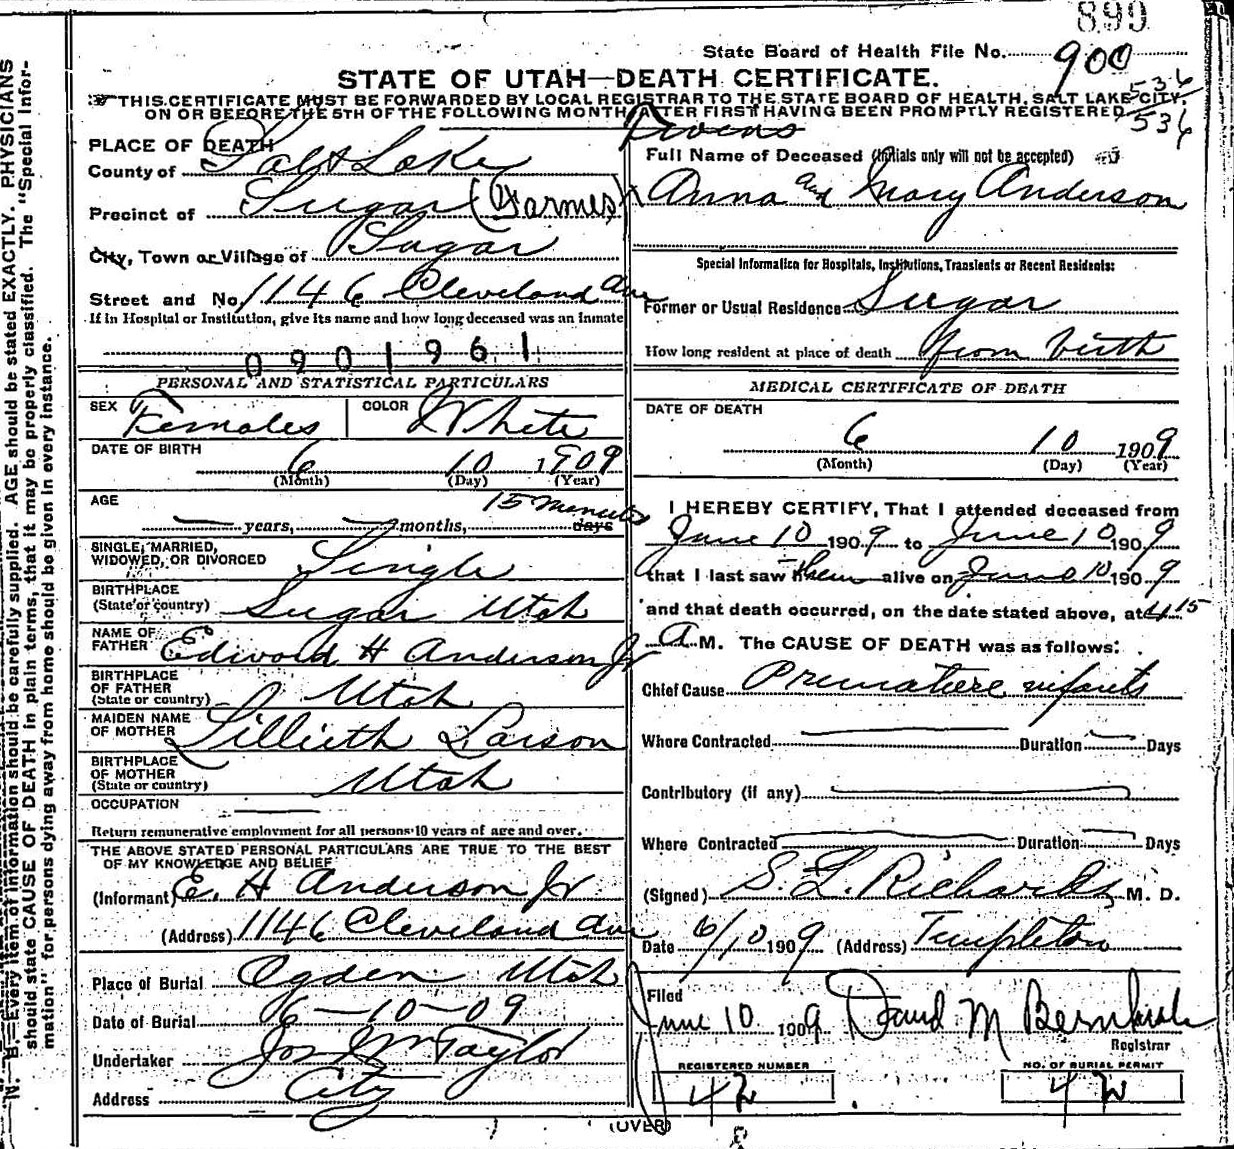 899
State Board of Health File No. 900
STATE OF UTAH—DEATH CERTIFICATE.
536
THIS CERTIFICATE MUST BE FORWARDED BY LOCAL REGISTRAR TO THE STATE BOARD OF HEALTH, SALT LAKE CITY,
ON OR BEFORE THE 5TH OF THE FOLLOWING MONTH AFTER FIRST HAVING BEEN PROMPTLY REGISTERED
536
PLACE OF DEATH
County of Salt Lake
Precinct of Sugar (Farmers)
City, Town or Village of Sugar
Street and No. 1146 Cleveland Ave
If in Hospital or Institution, give its name and how long deceased was an inmate
0901961
PERSONAL AND STATISTICAL PARTICULARS
SEX Females COLOR White
DATE OF BIRTH 6 10 1909
(Month) (Day) (Year)
AGE 15 minutes
years, months, days
SINGLE, MARRIED,
WIDOWED, OR DIVORCED Single
BIRTHPLACE
(State or country) Sugar Utah
NAME OF
FATHER Edward H Anderson Jr
BIRTHPLACE
OF FATHER
(State or country) Utah
MAIDEN NAME
OF MOTHER Lillieth Larson
BIRTHPLACE
OF MOTHER
(State or country) Utah
OCCUPATION
Return remunerative employment for all persons 10 years of age and over.
THE ABOVE STATED PERSONAL PARTICULARS ARE TRUE TO THE BEST
OF MY KNOWLEDGE AND BELIEF
(Informant) E. H Anderson Jr
(Address) 1146 Cleveland Ave
Place of Burial Ogden Utah
Date of Burial 6-10-09
Undertaker Jos Wm Taylor
Address City
Twins
Full Name of Deceased (Initials only will not be accepted)
Anna and Mary Anderson
Special Information for Hospitals, Institutions, Transients or Recent Residents:
Former or Usual Residence Sugar
How long resident at place of death from birth
MEDICAL CERTIFICATE OF DEATH
DATE OF DEATH
6 10 1909
(Month) (Day) (Year)
I HEREBY CERTIFY, That I attended deceased from
June 10 1909 to June 10 1909
that I last saw them alive on June 10 1909
and that death occurred, on the date stated above, at 4.15
A M. The CAUSE OF DEATH was as follows:
Chief Cause Premature infants
Where Contracted Duration Days
Contributory (if any)
Where Contracted Duration Days
(Signed) S. L. Richards M. D.
Date 6/10 1909 (Address) Templeton
Filed
June 10 1909 David M Bernhisel
Registrar
REGISTERED NUMBER
42
NO. OF BURIAL PERMIT
42
(OVER)
N. B.—Every item of information should be carefully supplied. AGE should be stated EXACTLY. PHYSICIANS
should state CAUSE OF DEATH in plain terms, that it may be properly classified. The "Special Infor-
mation" for persons dying away from home should be given in every instance.